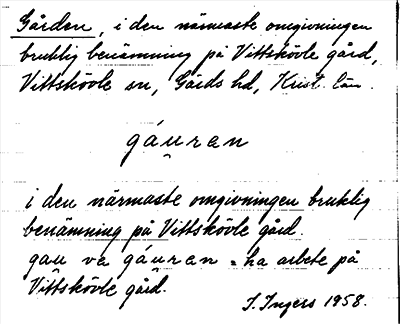 Gården, i den närmaste omgivningen
bruklig benämning på Vittskövle gård,
Vittskövle sn, Gärds hd, Krist. län.
gáu̯ran
i den närmaste omgivningen bruklig
benämning på Vittskövle gård.
gau va gáu̯ran = ha arbete på
Vittskövle gård.
I. Ingers 1958.